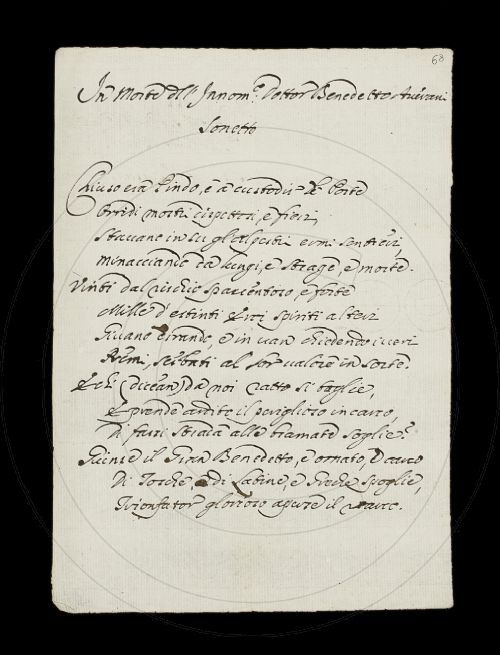 68
In Morte dell' Innom.o Dottor Benedetto Averani
Sonetto
Chiuso era Pindo, e a custodir le Porte
Orridi mostri dispettosi, e fieri,
Stavano in su gli alpestri ermi sentieri,
minacciando da lungi, e strage, e morte.
Vinti dal rischio spaventoso, e forte
Mille d'estinti Eroi spiriti alteri
Givano errando, e in van chiedendo i veri
Premi, serbati al lor valore in sorte.
E chi (dicean) da noi ratto si toglie,
E prende ardito il periglioso incarco,
Di farsi strada alle bramate soglie?
Giunse il Gran Benedetto, e ornato, e carco
Di Tosche e di Latine, e Greche spoglie,
Trionfator glorioso aperse il varco.